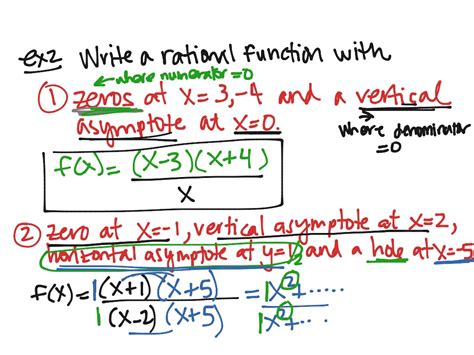 ex2 Write a rational function with
← where numerator = 0
① zeros at x = 3, -4 and a vertical
asymptote at x = 0.
→ where denominator
= 0
f(x) = (x-3)(x+4)
x
② zero at x = -1, vertical asymptote at x = 2,
horizontal asymptote at y = 1, and a hole at x = -5
f(x) = 1(x+1)(x+5) = 1x²+.....
1(x-2)(x+5) 1x²+...